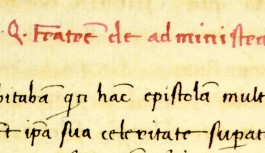 Q. fratrē de administra
bitabaꝫ qn̄ hanc epistolam mult
t ip̄a sua celeritate supat